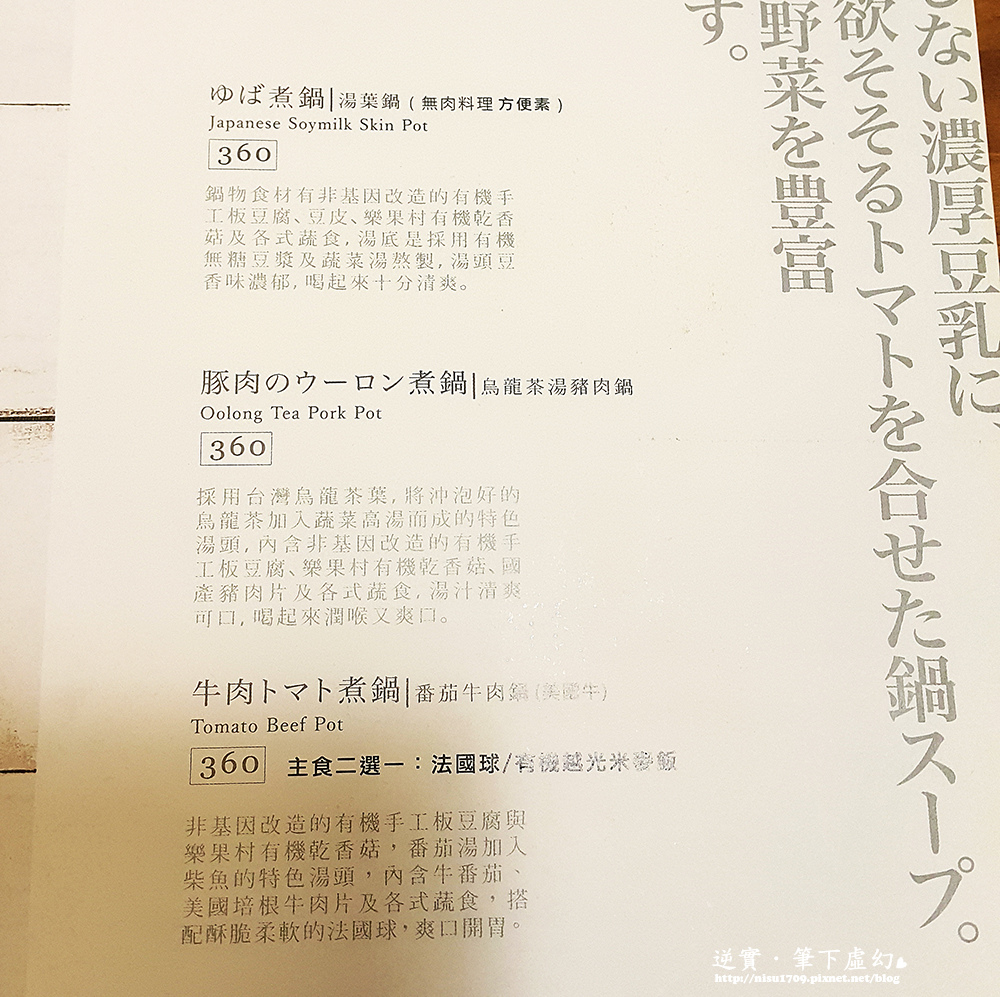 ゆば煮鍋|湯葉鍋（無肉料理 方便素）
Japanese Soymilk Skin Pot
360
鍋物食材有非基因改造的有機手
工板豆腐、豆皮、樂果村有機乾香
菇及各式蔬食，湯底是採用有機
無糖豆漿及蔬菜湯熬製，湯頭豆
香味濃郁，喝起來十分清爽。
豚肉のウーロン煮鍋|烏龍茶湯豬肉鍋
Oolong Tea Pork Pot
360
採用台灣烏龍茶葉，將沖泡好的
烏龍茶加入蔬菜高湯而成的特色
湯頭，內含非基因改造的有機手
工板豆腐、樂果村有機乾香菇、國
產豬肉片及各式蔬食，湯汁清爽
可口，喝起來潤喉又爽口。
牛肉トマト煮鍋|番茄牛肉鍋(美國牛)
Tomato Beef Pot
360 主食二選一：法國球/有機越光米麥飯
非基因改造的有機手工板豆腐與
樂果村有機乾香菇，番茄湯加入
柴魚的特色湯頭，內含牛番茄、
美國培根牛肉片及各式蔬食，搭
配酥脆柔軟的法國球，爽口開胃。
ない濃厚豆乳に、
欲そそるトマトを合せた鍋スープ。
野菜を豊富
す。
逆實・筆下虛幻
http://nisu1709.pixnet.net/blog